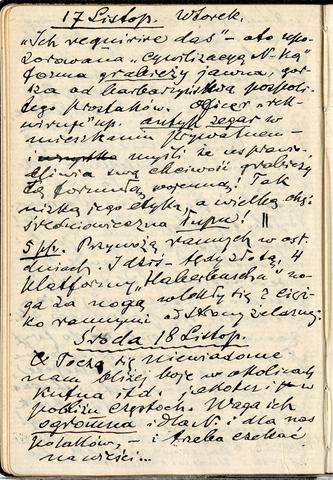 17 Listop. Wtorek.
„Ich requirire das" – oto upo-
zorowana „cywilizacyą N-ką"
forma grabieży jawna, gor-
sza od barbarzyństwa pospoli-
tego prostaków. Oficer „rek-
wiruje" np. antyk zegar w
mieszkaniu prywatnem –
i myśli że usprawie-
dliwia swą chciwość grabieży
tą formułą wojenną! Tak
nizka jego etyka, a wielką chęć
średniowieczna łupu! ||
5 pp. Przywożą rannych w ost.
dniach. I dziś – tędy złotą, 4
platformy „Haberbuscha" no-
ga za nogą wlokły się z cięż-
ko rannymi od strony żelaznej.
Środa 18 Listop.
Toczą się niewiadome
nam bliżej boje w okolicach
Kutna itd. jakoteż w
pobliżu Częstoch. Waga ich
ogromna i dla N. i dla nas
polaków, – i trzeba czekać
na wieści...